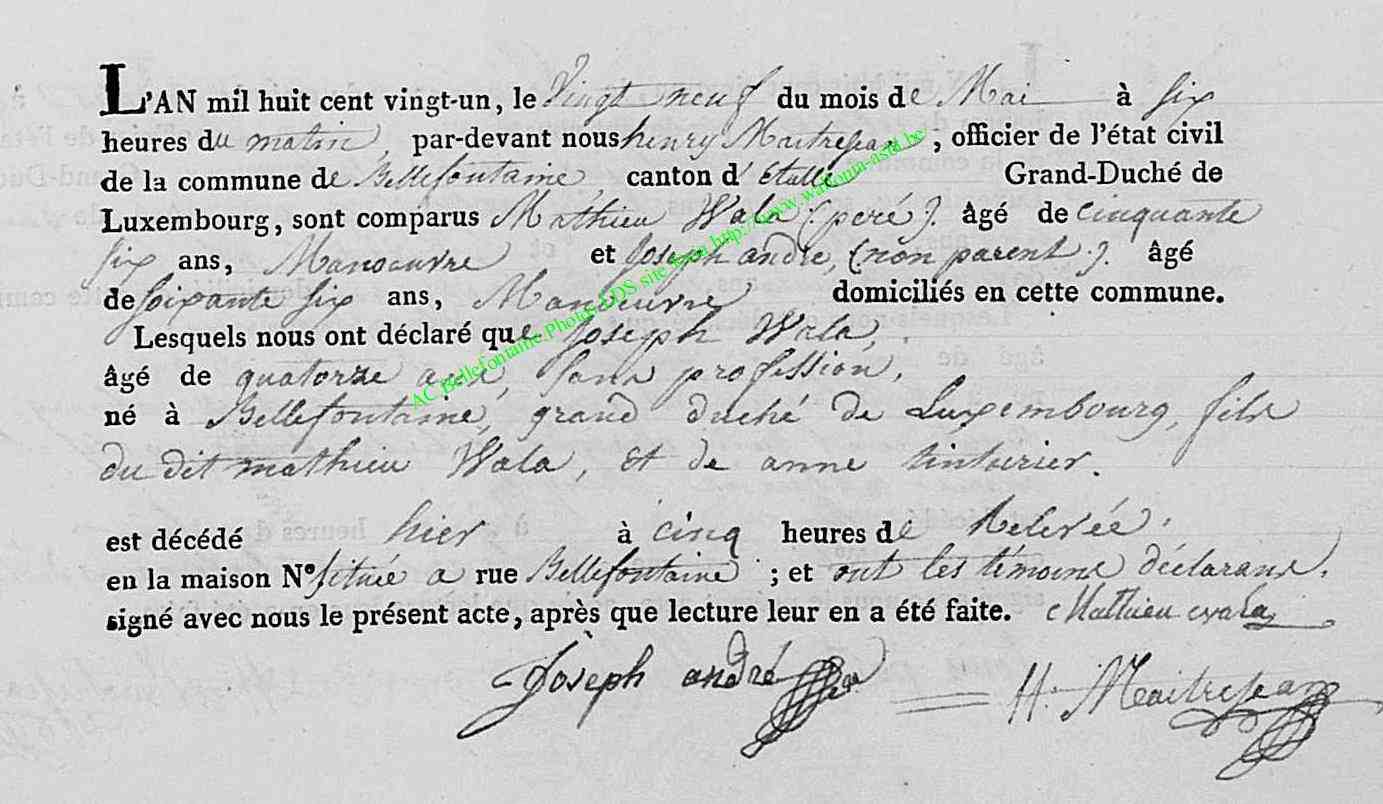 L'AN mil huit cent vingt-un, le Vingt neuf du mois de Mai à six
heures du matin, par-devant nous henry Maitrejean, officier de l'état civil
de la commune de Bellefontaine, canton d'étalle Grand-Duché de
Luxembourg, sont comparus Mathieu Wala (peré). âgé de cinquante
six ans, Manoeuvre et Joseph andré, (non parent.). âgé
de soixante six ans, Manoeuvre domiciliés en cette commune.
Lesquels nous ont déclaré que Joseph Wala,
âgé de quatorze ans, sans profession,
né à Bellefontaine, grand duché de Luxembourg, fils
du dit mathieu Wala, et de anne tinturier.
est décédé hier à cinq heures de Relevée.
en la maison N° située a rue Bellefontaine ; et ont les témoins déclarans,
signé avec nous le présent acte, après que lecture leur en a été faite. Mathieu wala
Joseph andré H. Maitrejean
AC Bellefontaine. Photos LDS site Asta http://www.wallonia-asbl.be